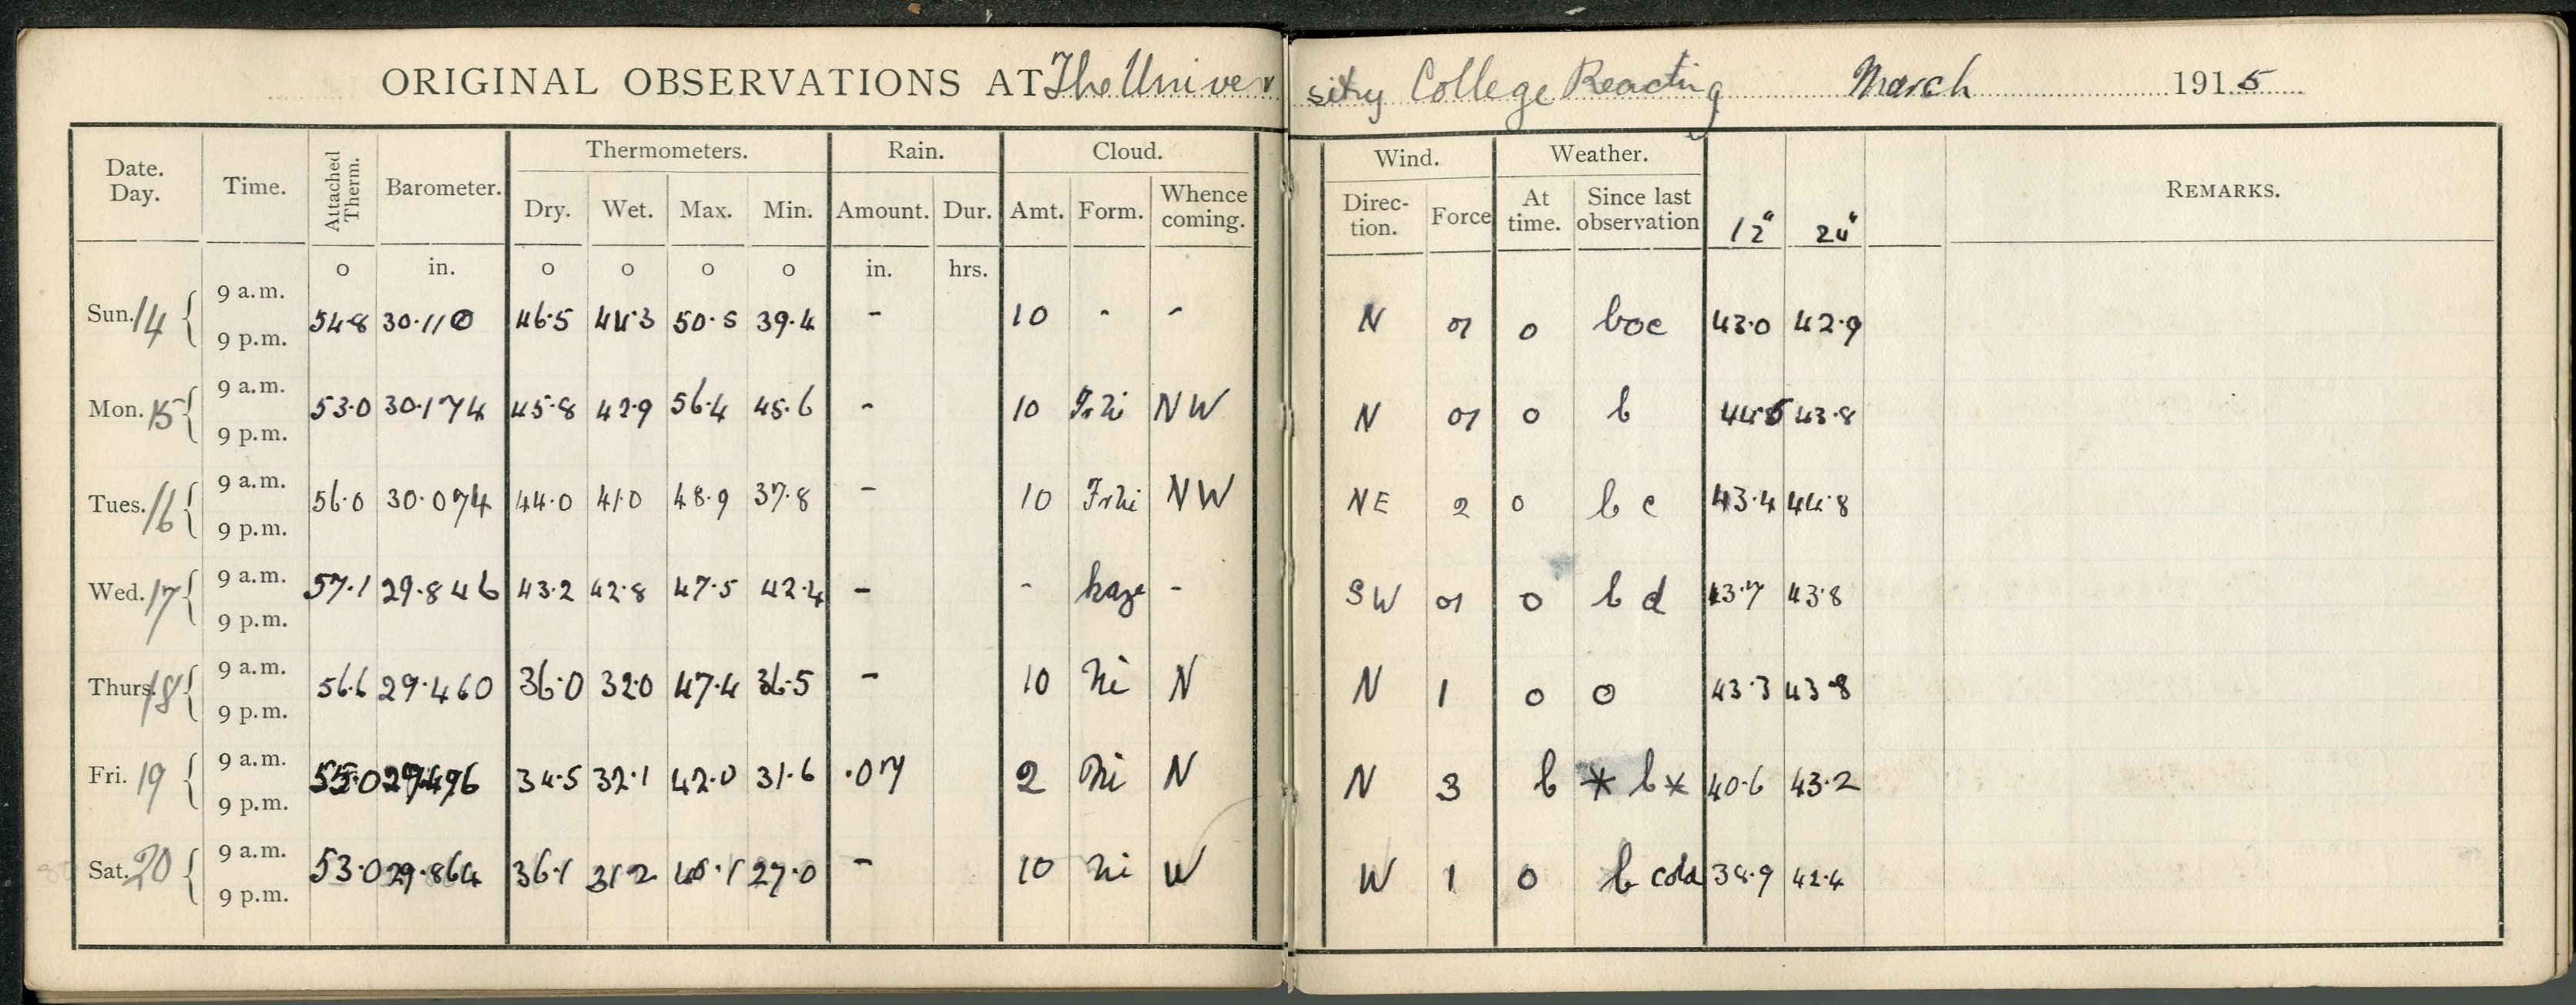 ORIGINAL OBSERVATIONS AT The University College Reading March 1915
Date. Day. Time. Attached Therm. Barometer. Thermometers. Rain. Cloud. Wind. Weather. REMARKS.
Dry. Wet. Max. Min. Amount. Dur. Amt. Form. Whence coming. Direction. Force At time. Since last observation 12" 24"
o in. o o o o in. hrs.
9 a.m.
Sun. 14 54.8 30.110 46.5 44.3 50.5 39.4 - 10 - - N 01 o boc 43.0 42.9
9 p.m.
9 a.m.
Mon. 15 53.0 30.174 45.8 42.9 56.4 45.6 - 10 Fr Ni NW N 01 o b 44.5 43.8
9 p.m.
9 a.m.
Tues. 16 56.0 30.074 44.0 41.0 48.9 37.8 - 10 Fr Ni NW NE 2 o b c 43.4 44.8
9 p.m.
9 a.m.
Wed. 17 57.1 29.846 43.2 42.8 47.5 42.4 - - haze - SW 01 o b d 43.7 43.8
9 p.m.
9 a.m.
Thurs. 18 56.6 29.460 36.0 32.0 47.4 36.5 - 10 Ni N N 1 o o 43.3 43.8
9 p.m.
9 a.m.
Fri. 19 55.0 29.496 34.5 32.1 42.0 31.6 .07 2 Ni N N 3 b * b * 40.6 43.2
9 p.m.
9 a.m.
Sat. 20 53.0 29.864 36.1 31.2 27.0 - 10 Ni W W 1 o b cold 38.9 42.4
9 p.m.